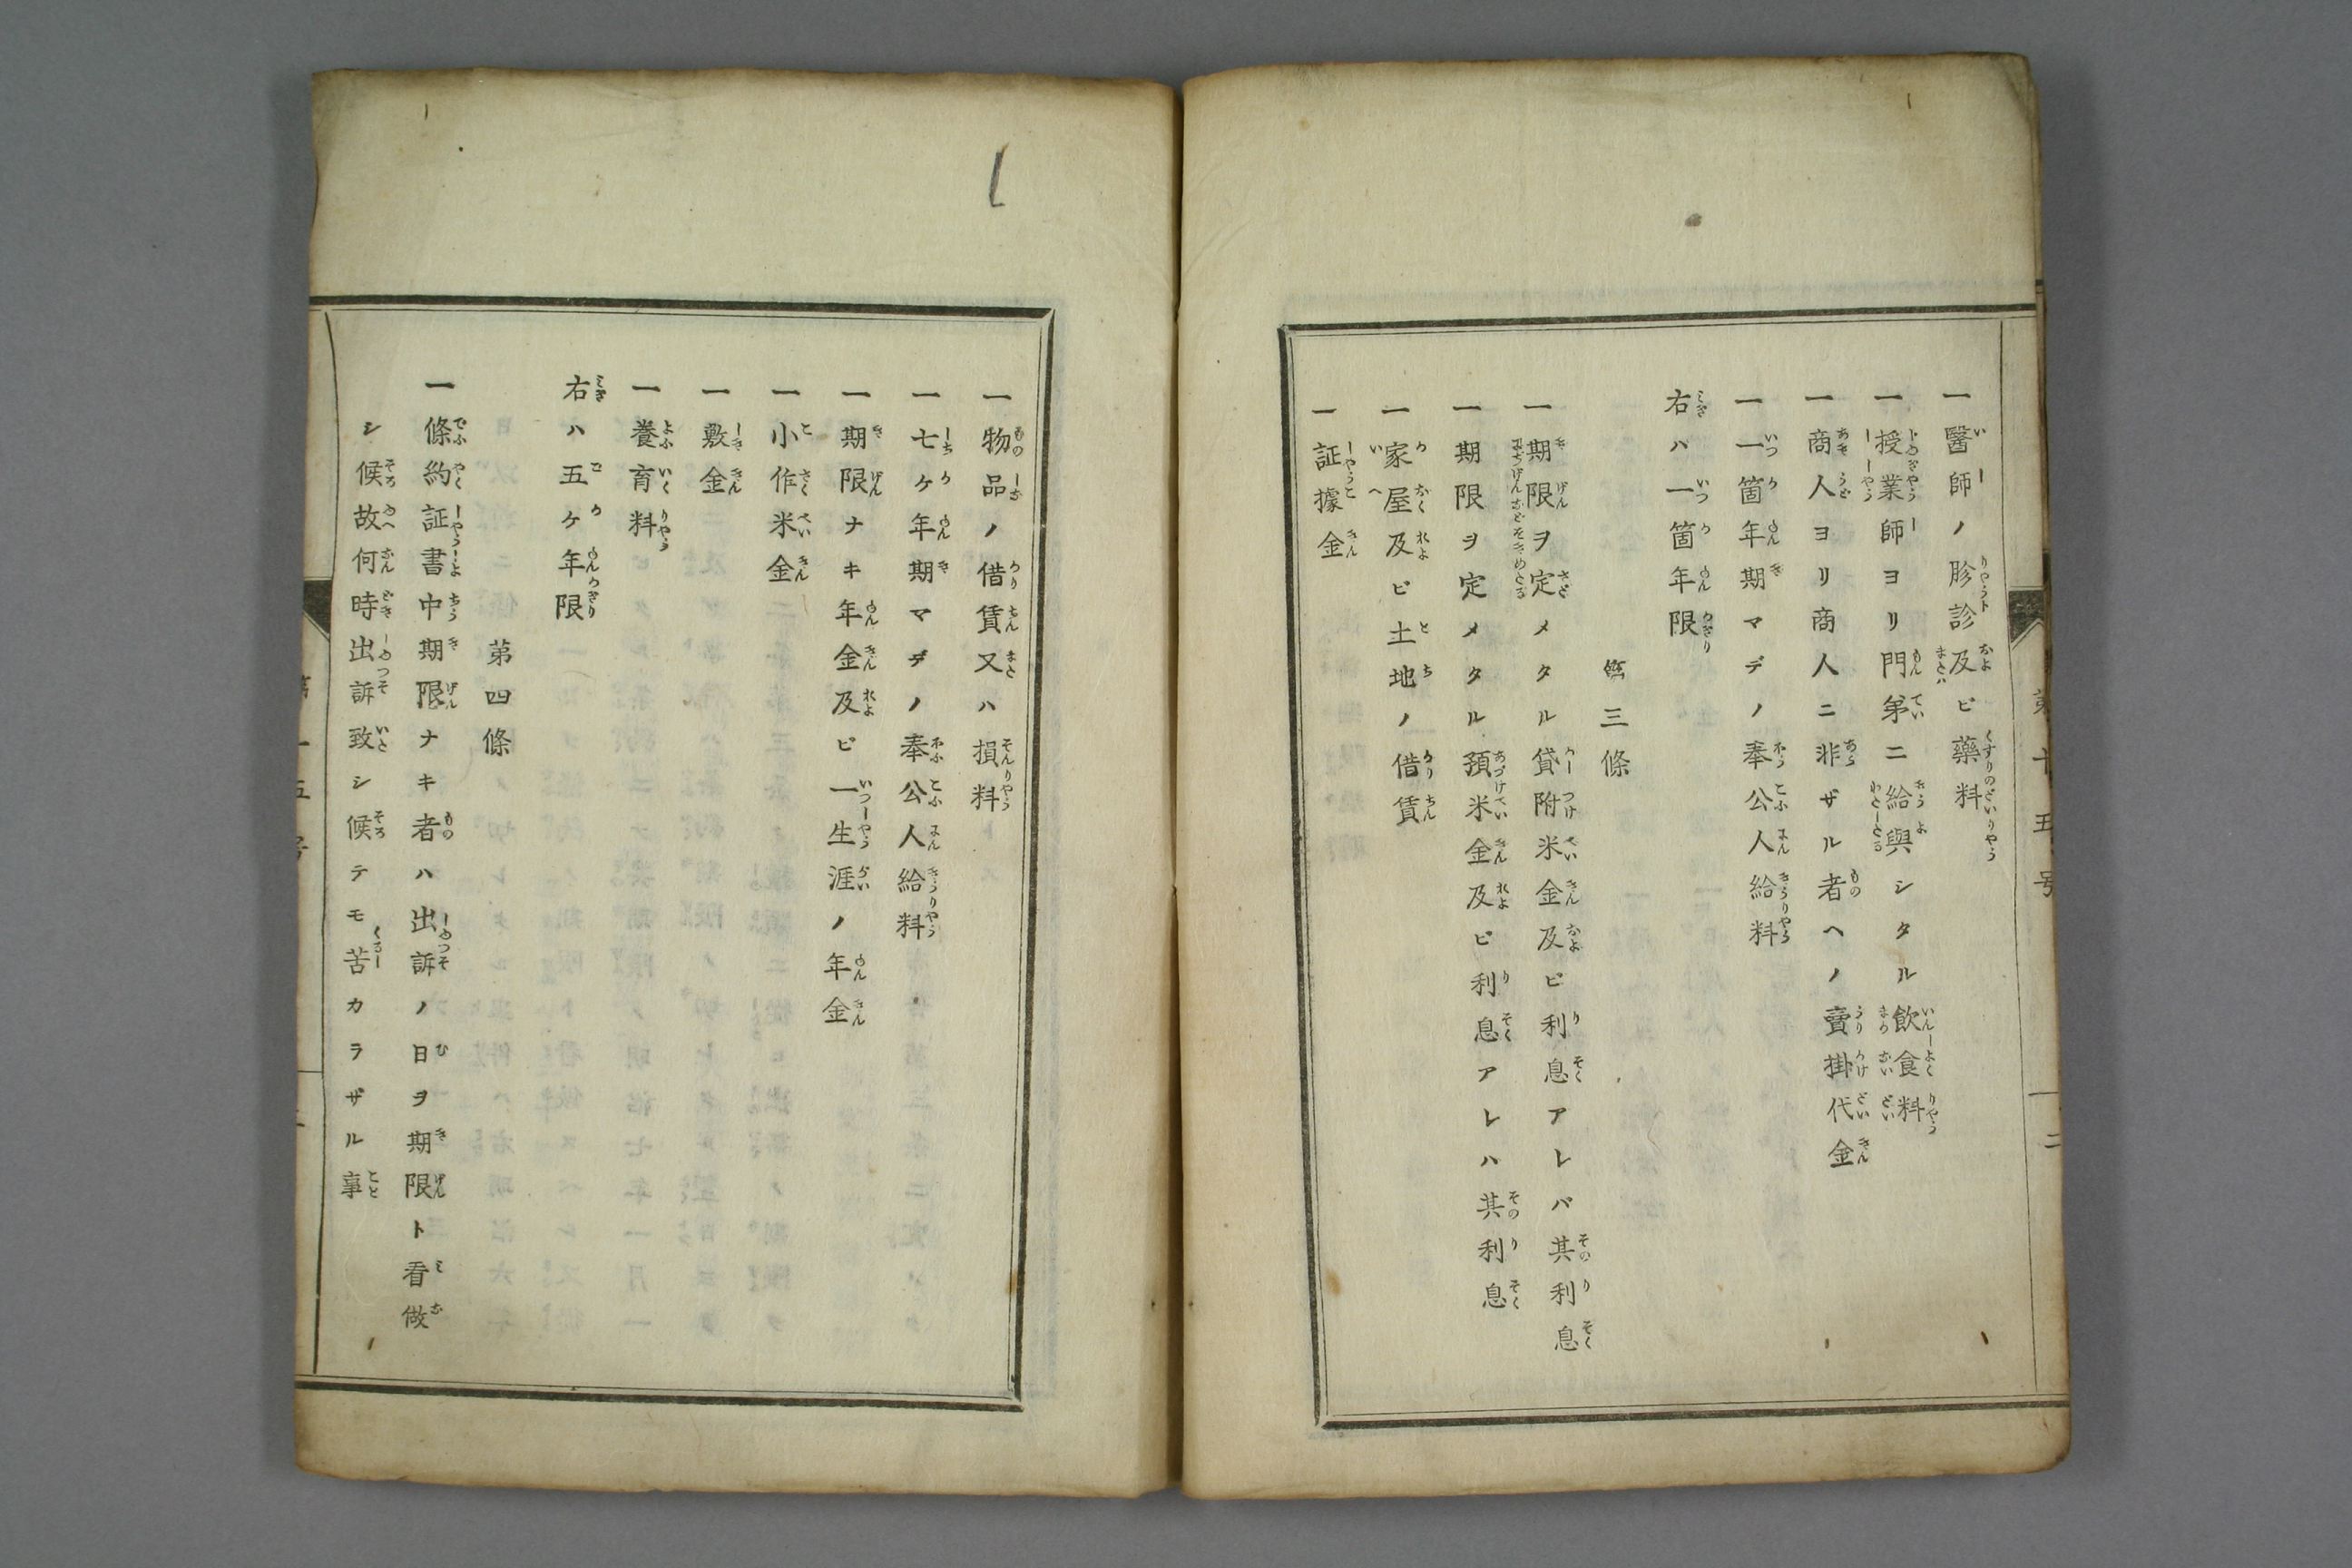 一醫師ノ胗診及ビ藥料
一授業師ヨリ門第ニ給與シタル飲食料
一商人ヨリ商人ニ非ザル者ヘノ賣掛代金
一一箇年期マデノ奉公人給料
右ハ一箇年限
第三條
一期限ヲ定メタル貸附米金及ビ利息アレバ其利息
一期限ヲ定メタル預米金及ビ利息アレハ其利息
一家屋及ビ土地ノ借賃
一証據金
一物品ノ借賃又ハ損料
一七ケ年期マデノ奉公人給料
一期限ナキ年金及ビ一生涯ノ年金
一小作米金
一敷金
一養育料
右ハ五ケ年限
第四條
一條約証書中期限ナキ者ハ出訴ノ日ヲ期限ト看做
シ候故何時出訴致シ候テモ苦カラザル事